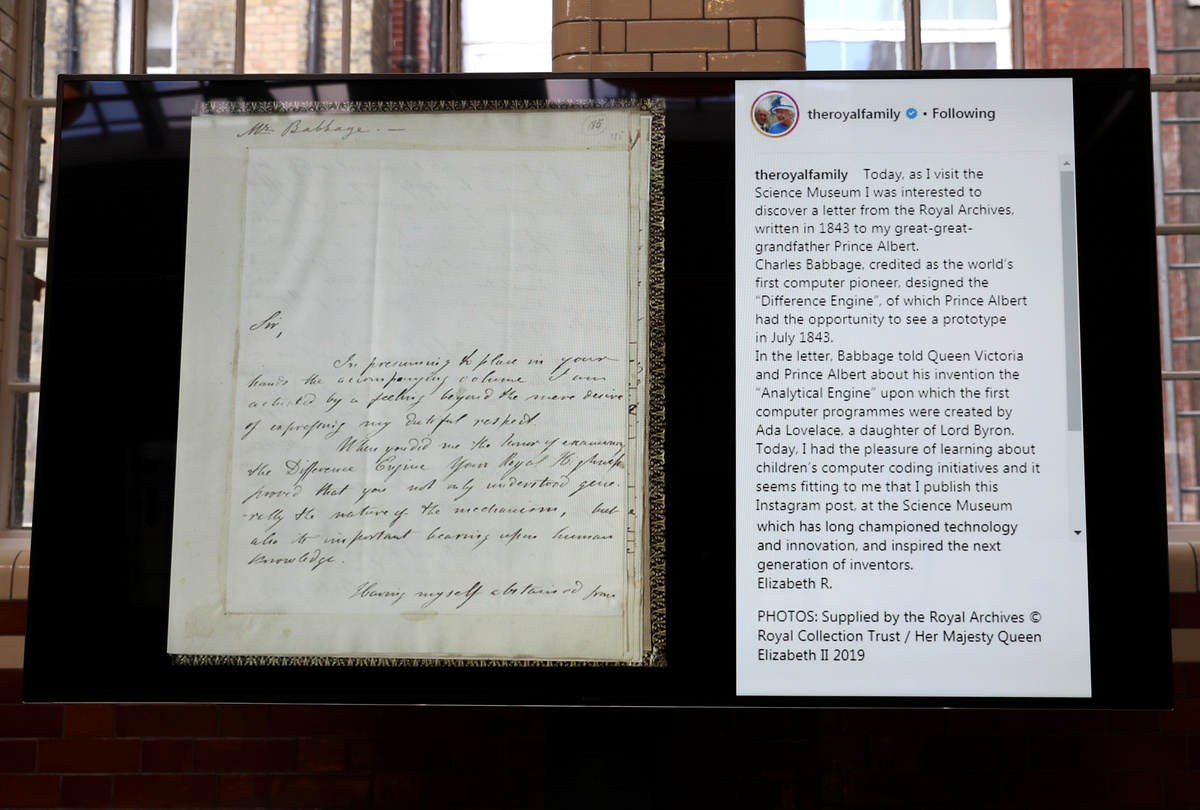 Mr. Babbage. —
186
Sir,
In presuming to place in your
hands the accompanying volume I am
actuated by a feeling beyond the mere desire
of expressing my dutiful respect.
When you did me the honor of examining
the Difference Engine Your Royal Highness
proved that you not only understood gene-
-rally the nature of the mechanism, but
also its important bearing upon human
knowledge.
Having myself abstained from
theroyalfamily • Following
theroyalfamily Today, as I visit the
Science Museum I was interested to
discover a letter from the Royal Archives,
written in 1843 to my great-great-
grandfather Prince Albert.
Charles Babbage, credited as the world's
first computer pioneer, designed the
“Difference Engine”, of which Prince Albert
had the opportunity to see a prototype
in July 1843.
In the letter, Babbage told Queen Victoria
and Prince Albert about his invention the
“Analytical Engine” upon which the first
computer programmes were created by
Ada Lovelace, a daughter of Lord Byron.
Today, I had the pleasure of learning about
children's computer coding initiatives and it
seems fitting to me that I publish this
Instagram post, at the Science Museum
which has long championed technology
and innovation, and inspired the next
generation of inventors.
Elizabeth R.
PHOTOS: Supplied by the Royal Archives ©
Royal Collection Trust / Her Majesty Queen
Elizabeth II 2019